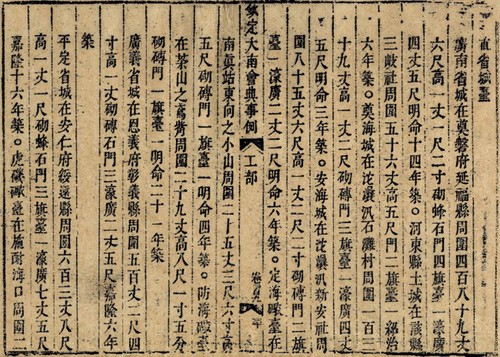 直省城臺
廣南省城在奠磐府延福縣周圍四百八十九丈
六尺高一丈一尺二寸砌蜂石門四旗臺一濠廣
四丈五尺明命十四年築。河東縣土城在該縣
三歧社周圍五十六丈高五尺門二旗臺一紹治
六年築。奠海城在沱灢汛石灘村周圍一百三
十九丈高一丈二尺砌磚門三旗臺一濠廣四丈
五尺明命三年築。安海城在沱灢汛新安社周
圍八十五丈六尺高一丈二尺二寸砌磚門二旗
臺一濠廣二丈二尺明命六年築。定海礮臺在
欽定大南會典事例 工部 卷
南真站東向之小山周圍二十五丈三尺六寸高
五尺砌磚門一旗臺一明命四年築。防海礮臺
在茅山之旁周圍二十九丈高八尺一寸五分
砌磚門一旗臺一明命二十一年築
廣義省城在思義府彰義縣周圍五百丈二尺四
寸高一丈砌磚石門三濠廣二丈五尺嘉隆六年
築
平定省城在安仁府綏遠縣周圍六百三丈八尺
高一丈一尺砌蜂石門三旗臺一濠廣七丈五尺
嘉隆十六年築。虎磯礮臺在施耐海口周圍二